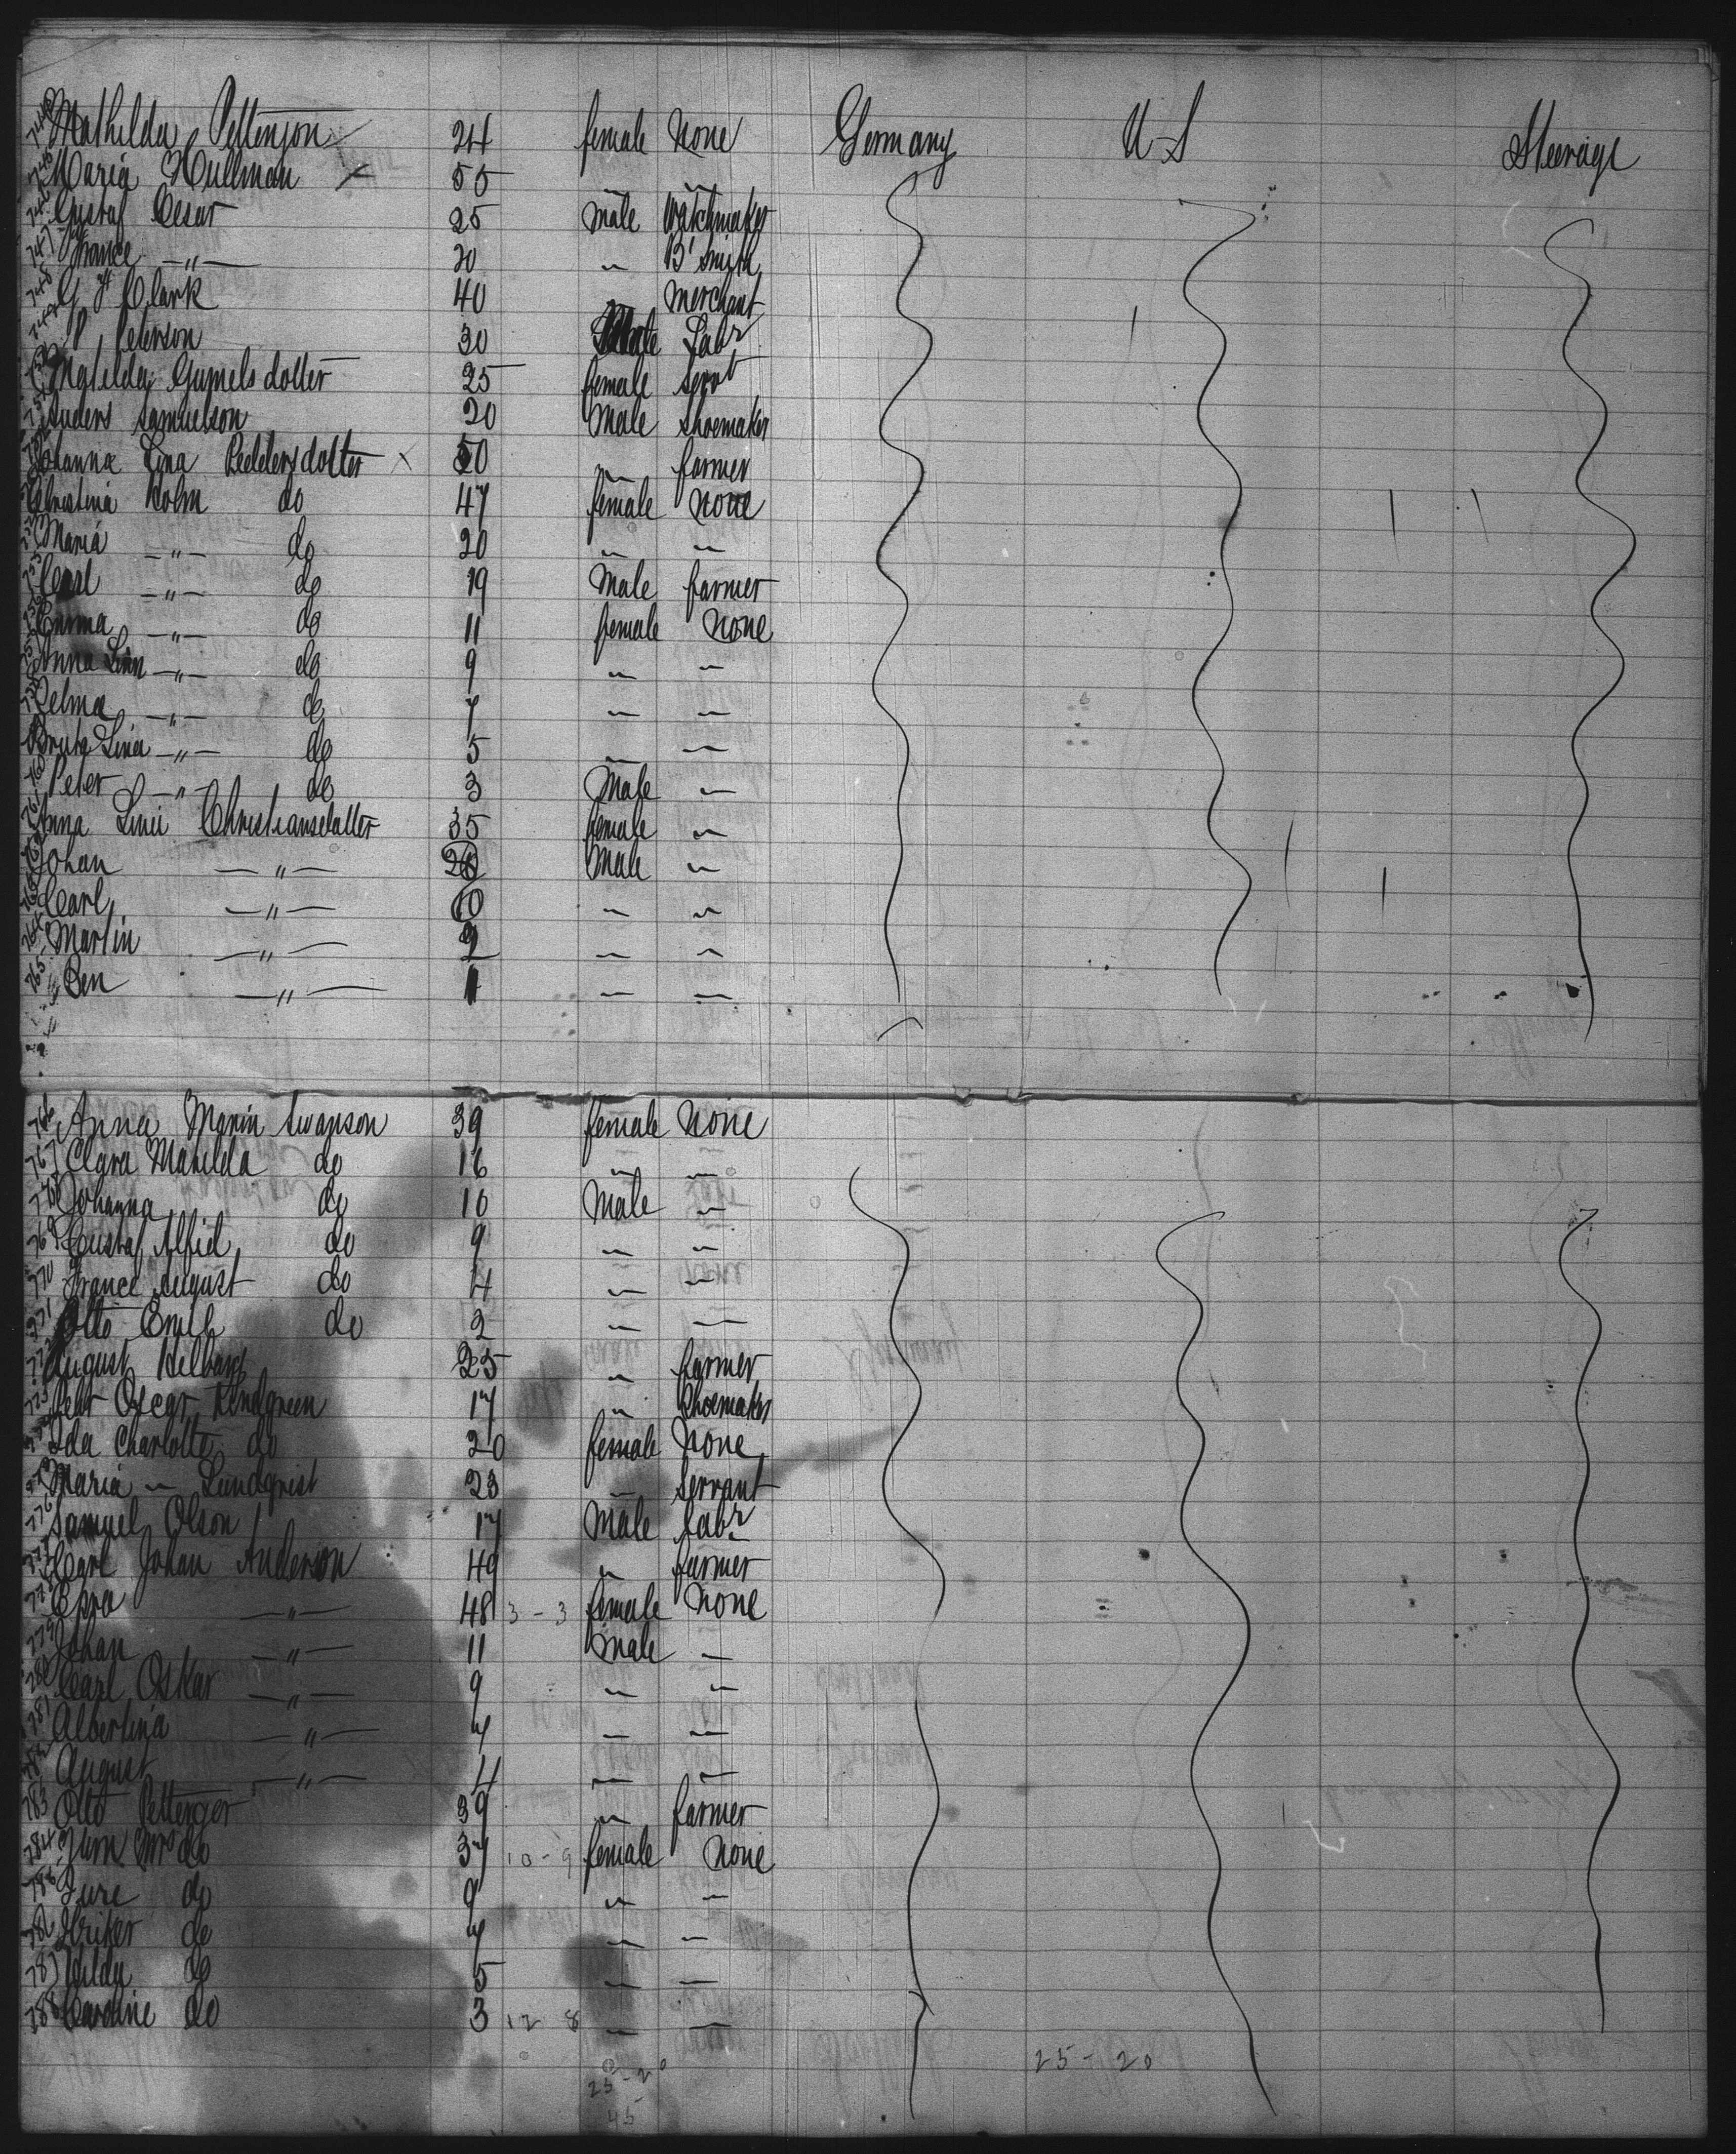 744 Mathilda Pettenson 24 female None Germany U S Steerage
745 Maria Hullman x 55 " "
746 Gustaf Cesar 25 male Watchmaker
747 France —"— 20 " B'Smith
748 G H Clark 40 merchant
749 P Peterson 30 Male Labr
750 Matilda Gumelsdotter 25 female Servt
751 Anders Samuelson 20 Male Shoemaker
Johanna Lina Peddersdotter x 50 " farmer
Christina Holm do 47 female None
Maria —"— do 20 " "
Carl —"— do 19 Male farmer
Emma —"— do 11 female None
Anna Linn —"— do 9 " "
Selma —"— do 7 " "
Lina —"— do 5 " "
760 Peter —"— do 3 Male "
761 Anna Linii Christiansdatter 35 female "
762 Johan —"— 20 Male "
763 Carl —"— 10 " "
764 Martin —"— 2 " "
765 Ben —"— 1 " "
766 Anna Marin Swanson 39 female None
767 Clara Matilda do 16 " "
768 Johanna do 10 Male "
769 Gustaf Alfid do 9 " "
770 France August do 4 " "
771 Otto Emill do 2 " "
772 August Helberg 25 " farmer
773 Pehr Oscar Lendgreen 17 " Shoemaker
774 Ida Charlotte do 20 female None
775 Maria " Lundqrist 23 " Servant
776 Samuel Olson 17 Male Labr
777 Carl Johan Anderson 49 " farmer
778 —"— 48 3 - 3 female None
779 Johan —"— 11 male "
780 Carl Oskar —"— 9 " "
781 Albertina —"— 7 " "
782 August —"— 4 " "
783 Otto Pettenger 39 " farmer
784 Mrs do 37 10 - 9 female None
785 do 9 " "
786 do 7 " "
787 Hilda do 5 " "
788 Caroline do 3 12 8 " "
25 - 20 25 - 20
45